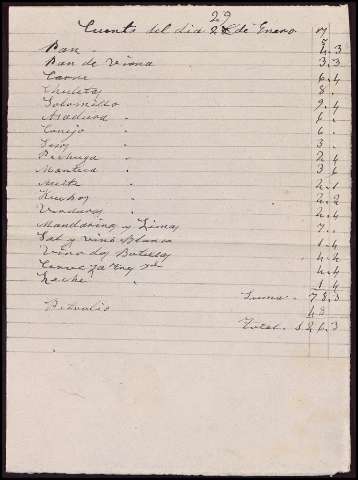 29
Cuenta del dia de Enero
Pan 4 3
Pan de Viena 3 3
Carne 6 4
Chuletas 8
Solomillo 9 4
Asadura 6
Conejo 6
Sesos 3
Pechuga 2 4
Manteca 3 6
Aceite 2 1
Huebos 2 2
Verduras 2 4
Mandarinas y Limas 7
Sal y vino Blanco 1 4
Vino dos Botellas 4 4
Cerveza 4 4
Leche 1 4
Suma 7 8 3
4 8
Total 1 2 6 3